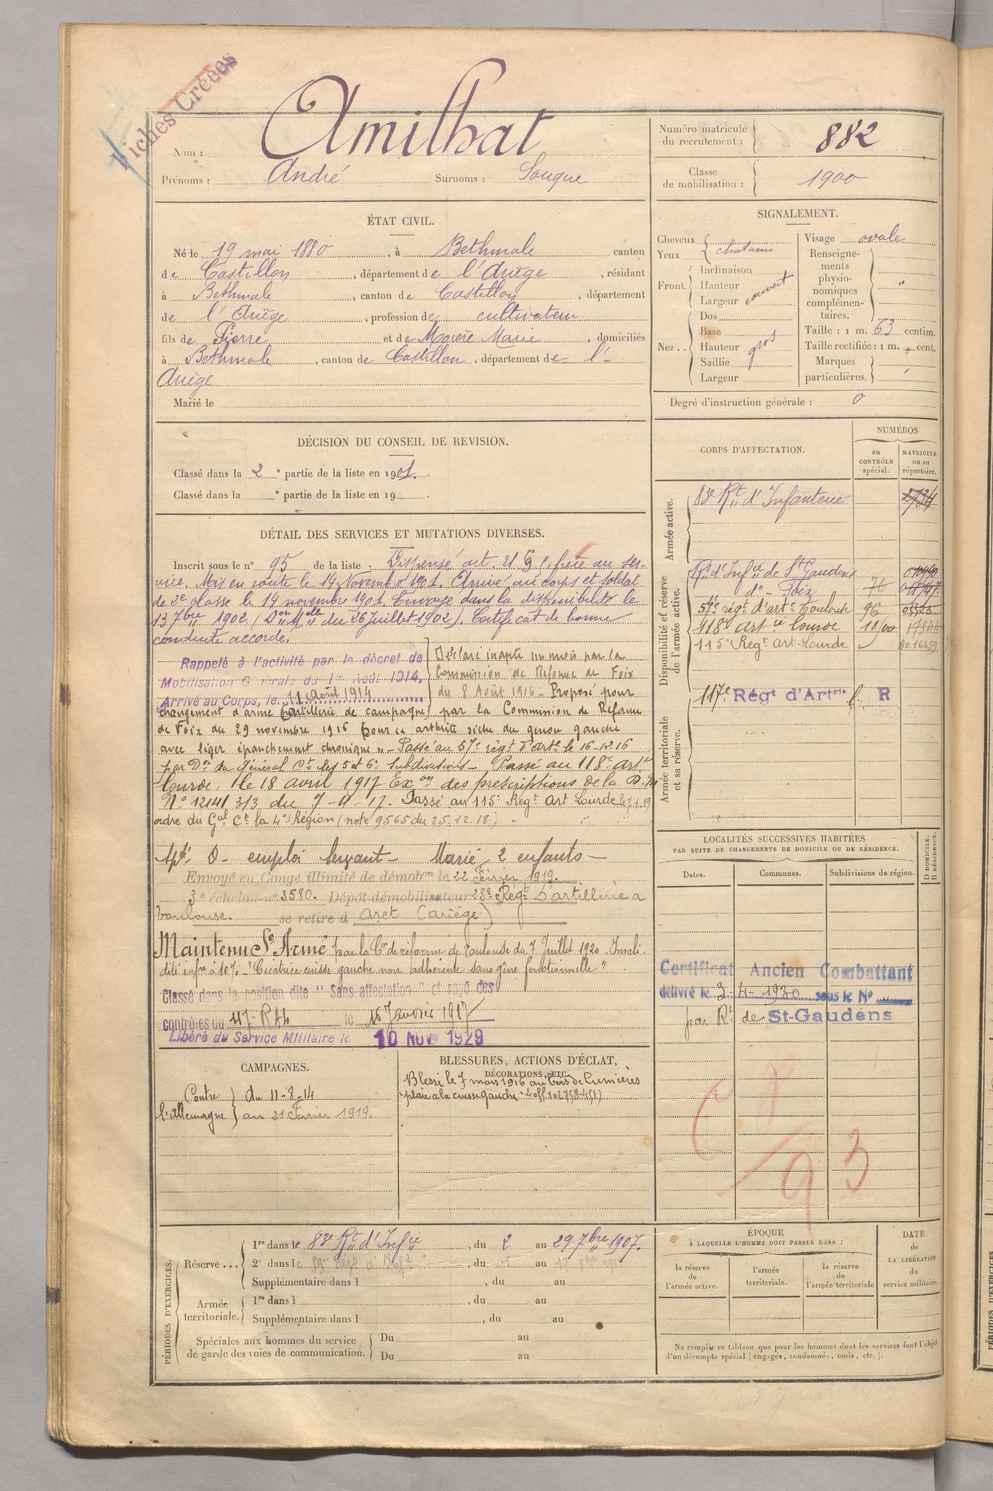 Fiches Créées
Nom : Amilhat
Prénoms : André Surnoms : Souque
Numéro matricule du recrutement : 882
Classe de mobilisation : 1900
ÉTAT CIVIL.
Né le 19 mai 1880, à Bethmale canton
de Castillon, département de l'Ariège, résidant
à Bethmale, canton de Castillon, département
de l'Ariège, profession de cultivateur
fils de Pierre et de Marie, domiciliés
à Bethmale, canton de Castillon, département de l'
Ariège
Marié le
SIGNALEMENT.
Cheveux
Yeux châtains
Front. Inclinaison
Hauteur
Largeur couvert
Nez.. Dos
Base
Hauteur
Saillie gros
Largeur
Visage ovale
Renseignements physionomiques complémentaires. "
Taille : 1 m. 63 centim.
Taille rectifiée : 1 m. " cent.
Marques particulières.
Degré d'instruction générale : 0
DÉCISION DU CONSEIL DE REVISION.
Classé dans la 2e partie de la liste en 1901.
Classé dans la e partie de la liste en 19
DÉTAIL DES SERVICES ET MUTATIONS DIVERSES.
Inscrit sur le n° 95 de la liste. Dispensé art. 21 § frère au ser-
vice. Mis en route le 14 Novembre 1901. Arrivé au corps et soldat
de 2e classe le 14 novembre 1901. Envoyé dans la disponibilité le
13 7bre 1902. (Don Mlle du 26 juillet 1902). Certificat de bonne
conduite accordé.
Rappelé à l'activité par le décret de
Mobilisation Générale du 1er Août 1914,
Arrivé au Corps, le 11 août 1914
Déclaré inapte un mois par la
Commission de Réforme de Foix
du 8 Août 1916 - Proposé pour
changement d'arme (artillerie de campagne) par la Commission de Réforme
de Foix du 29 novembre 1916 pour "arthrite sèche du genou gauche
avec léger épanchement chronique" - Passé au 57e régt d'arte le 16-12-16
par Don du Général Ct les 5 et 6e Subdivisions. Passé au 118e arte
Lourde. le 18 avril 1917 Exon des prescriptions de la D.M
N° 12141 3/3 du 7-4-17. Passé au 115e Régt art Lourde
ordre du Gal Ct la 4e Région (note 9565 du 25.12.18.)
D- emploi Servant - Marié, 2 enfants -
Envoyé en Congé illimité de démobon le 22 Février 1919.
3e échelon n° 3580. Dépôt démobilisateur 23e Régt d'artillerie à
Toulouse. se retire à Aret (Ariège)
Maintenu Sce Armé par la Con de réforme de Toulouse du 7 Juillet 1920 Invali-
dité infre à 10% - "Cicatrice cuisse gauche non adhérente sans gêne fonctionnelle"
Classé dans la position dite "Sans affectation" et rayé des
contrôles du 117e RAL le
Libéré du Service Militaire le 10 NOV 1929
CORPS D'AFFECTATION.
NUMÉROS
au CONTRÔLE spécial.
MATRICULE ou au répertoire.
Armée active.
83e Rt d'Infanterie 1734
Disponibilité et réserve de l'armée active.
Rt d'Infie de St Gaudens
do - Foix
57e régt d'arte Toulouse 96
118e artie Lourde
115e Régt art Lourde
117e Régt d'Artrie R
Armée territoriale et sa réserve.
LOCALITÉS SUCCESSIVES HABITÉES
PAR SUITE DE CHANGEMENTS DE DOMICILE OU DE RÉSIDENCE.
Dates. Communes. Subdivisions de région.
D DOMICILE. R RÉSIDENCE.
Certificat Ancien Combattant
délivré le 3-4-1930 sous le N°
par Rt de St-Gaudens
CAMPAGNES.
Contre l'Allemagne } du 11-8-14
au 21 Février 1919.
BLESSURES, ACTIONS D'ÉCLAT,
DÉCORATIONS, ETC.
Blessé le 7 mars 1916 au bois de Cumières
plaie à la cuisse gauche
93
PÉRIODES D'EXERCICES.
Réserve ... 1re dans le 83e Rt d'Infie, du 2 au 29 7bre 1907.
2e dans le , du au
Supplémentaire dans l , du au
Armée territoriale. 1re dans l , du au
Supplémentaire dans l , du au
Spéciales aux hommes du service
de garde des voies de communication. Du au
Du au
ÉPOQUE
À LAQUELLE L'HOMME DOIT PASSER DANS :
la réserve de l'armée active.
l'armée territoriale.
la réserve de l'armée territoriale
DATE de LA LIBÉRATION du service militaire.
Ne remplir ce tableau que pour les hommes dont les services font l'objet
d'un décompte spécial (engagés, condamnés, omis, etc.).